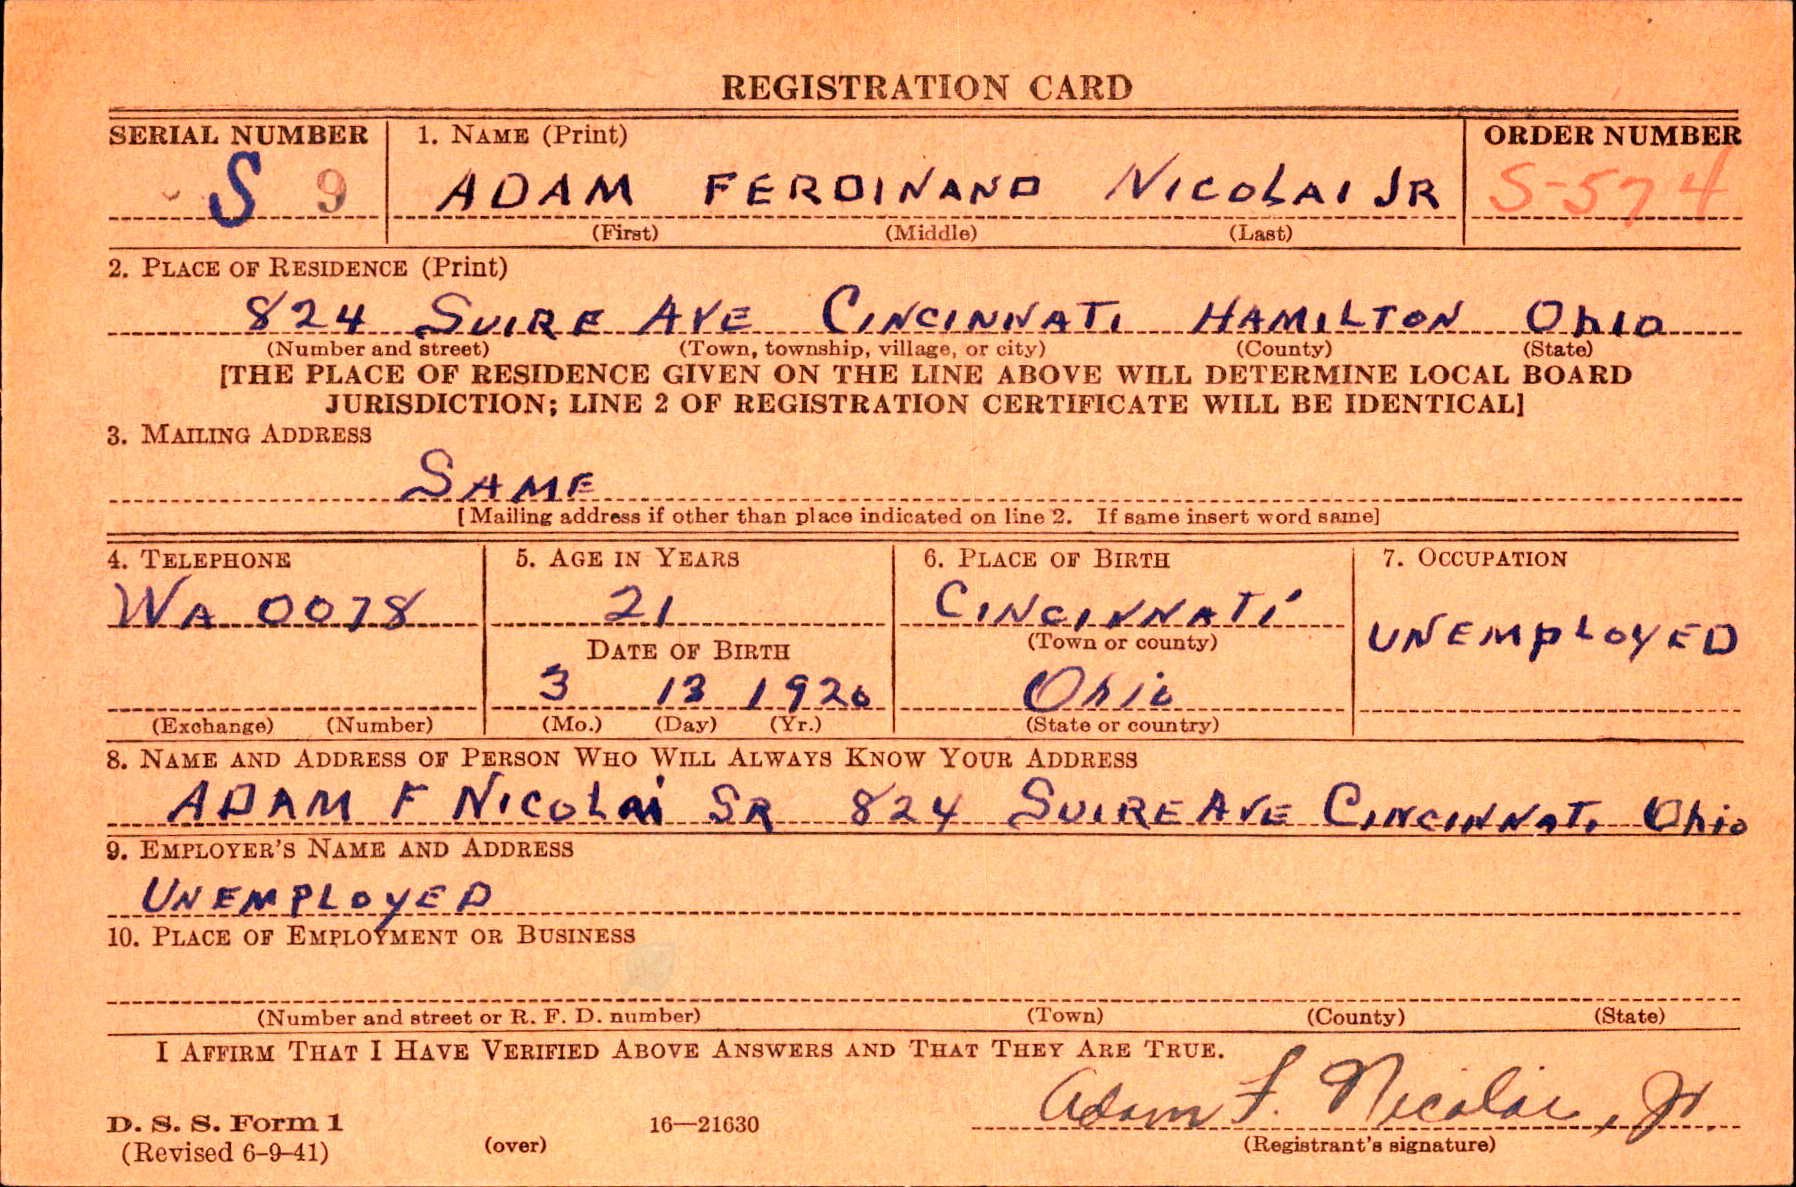 REGISTRATION CARD
SERIAL NUMBER 1. NAME (Print) ORDER NUMBER
S 9 ADAM FERDINAND NICOLAI JR S-574
(First) (Middle) (Last)
2. PLACE OF RESIDENCE (Print)
824 SUIRE AVE CINCINNATI HAMILTON OhIO
(Number and street) (Town, township, village, or city) (County) (State)
[THE PLACE OF RESIDENCE GIVEN ON THE LINE ABOVE WILL DETERMINE LOCAL BOARD
JURISDICTION; LINE 2 OF REGISTRATION CERTIFICATE WILL BE IDENTICAL]
3. MAILING ADDRESS
SAME
[Mailing address if other than place indicated on line 2. If same insert word same]
4. TELEPHONE 5. AGE IN YEARS 6. PLACE OF BIRTH 7. OCCUPATION
WA 0078 21 CINCINNATI UNEMPLOYED
DATE OF BIRTH (Town or county)
3 13 1920 Ohio
(Exchange) (Number) (Mo.) (Day) (Yr.) (State or country)
8. NAME AND ADDRESS OF PERSON WHO WILL ALWAYS KNOW YOUR ADDRESS
ADAM F NICOLAI SR 824 SUIRE AVE CINCINNATI Ohio
9. EMPLOYER'S NAME AND ADDRESS
UNEMPLOYED
10. PLACE OF EMPLOYMENT OR BUSINESS
(Number and street or R. F. D. number) (Town) (County) (State)
I AFFIRM THAT I HAVE VERIFIED ABOVE ANSWERS AND THAT THEY ARE TRUE.
Adam F. Nicolai, Jr.
D. S. S. Form 1 16—21630
(Revised 6-9-41) (over) (Registrant's signature)